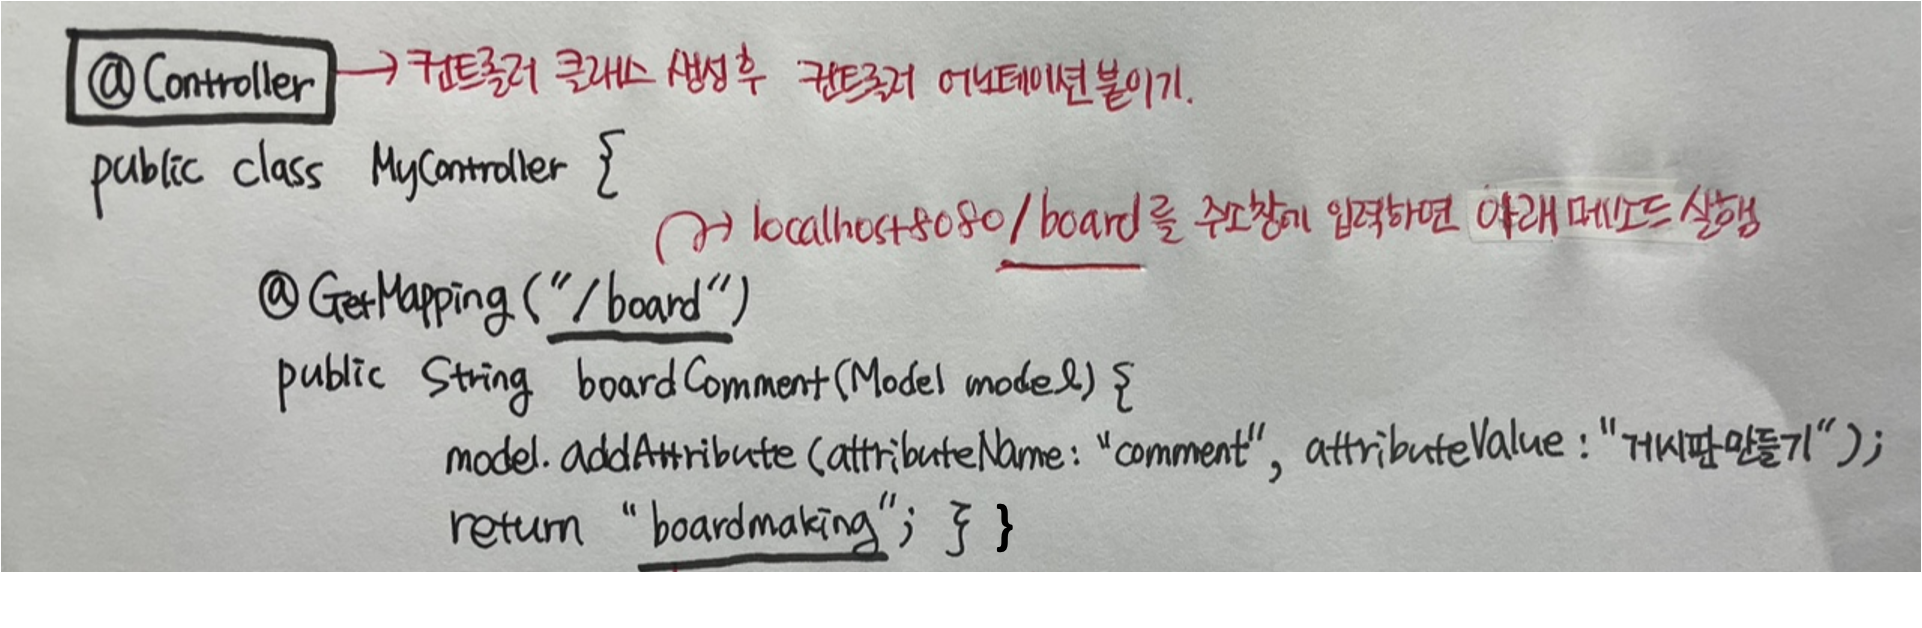 @Controller → 컨트롤러 클래스 생성 후 컨트롤러 어노테이션 붙이기.
public class MyController {
→ localhost8080/board를 주소창에 입력하면 아래 메소드 실행
@GetMapping("/board")
public String boardComment(Model model) {
model.addAttribute(attributeName: "comment", attributeValue: "게시판만들기");
return "boardmaking"; } }